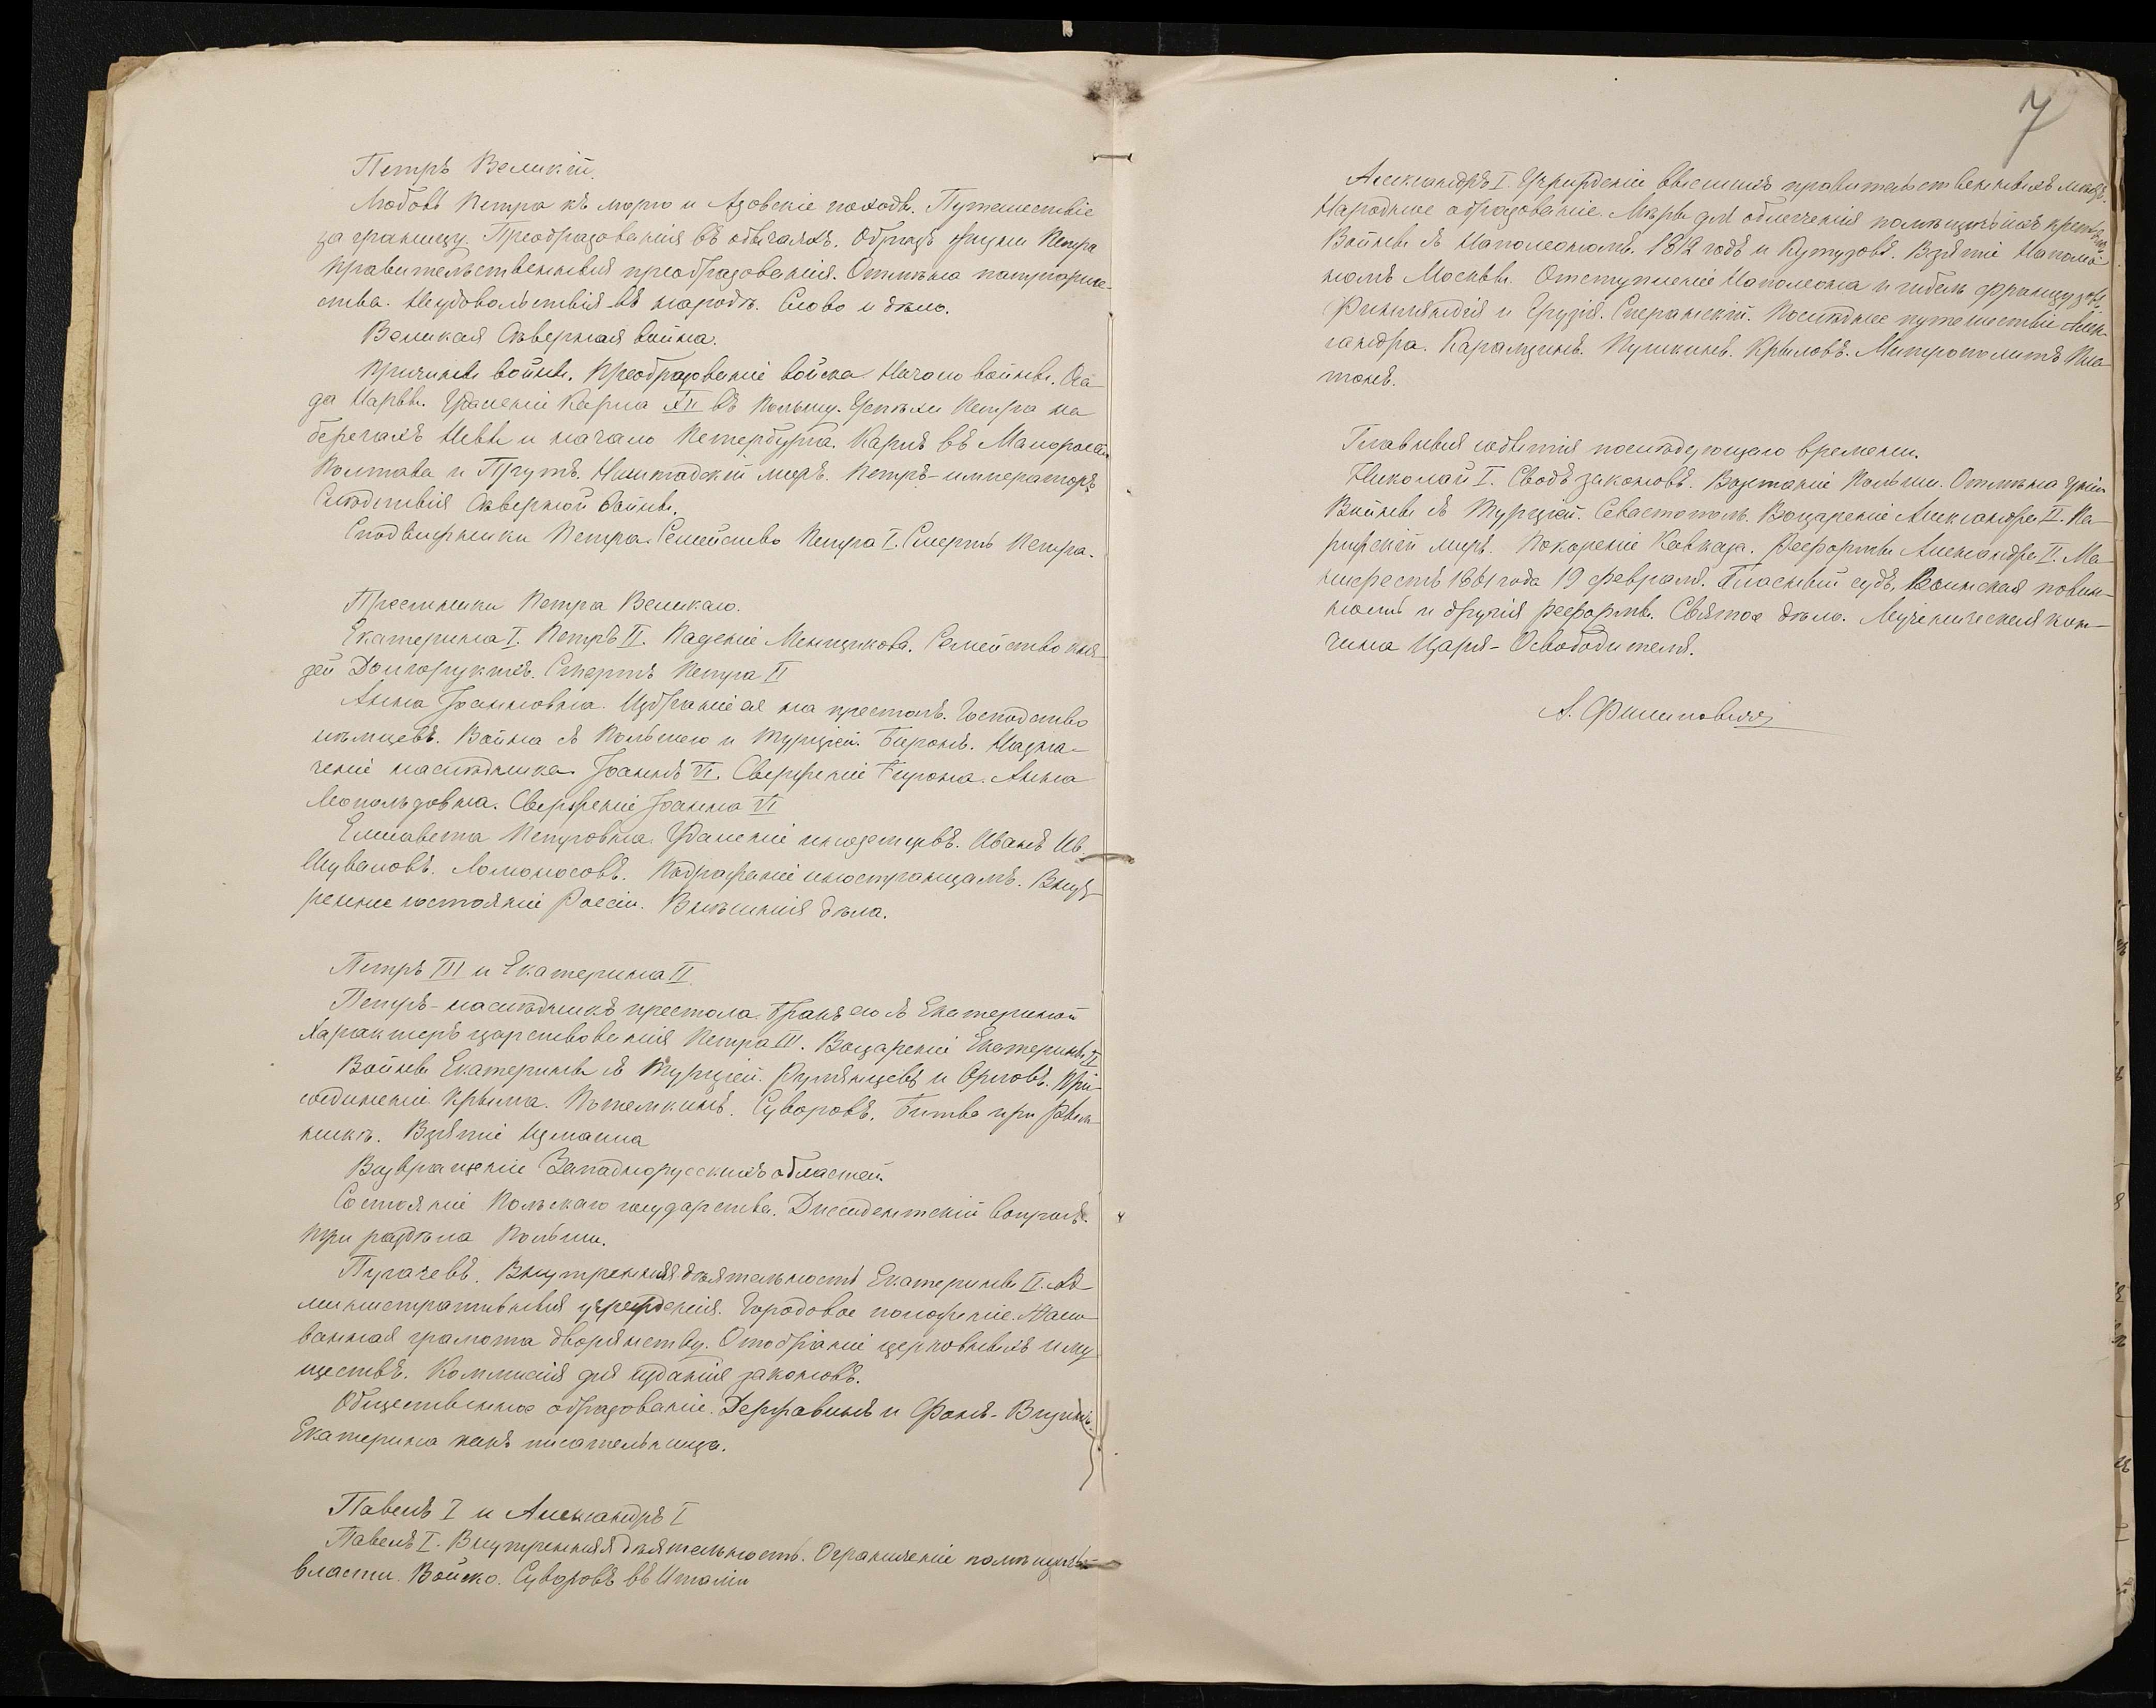 Петръ Великій.
Любовь Петра къ морю и Азовскіе походы. Путешествіе
за границу. Преобразованія въ обычаяхъ. Образъ жизни Петра
Правительственныя преобразованія. Отмѣна патріарше-
ства. Неудовольствія въ народѣ. Слово и дѣло.
Великая Сѣверная война.
Причины войны. Преобразованіе войска Начало войны. Оса-
да Нарвы. Удаленіе Карла XII въ Польшу. Успѣхи Петра на
берегахъ Невы и начало Петербурга. Карлъ въ Малороссіи
Полтава и Прутъ. Ништадскій миръ. Петръ-императоръ
Слѣдствія Сѣверной войны.
Сподвижники Петра. Семейство Петра I. Смерть Петра.
Преемники Петра Великаго.
Екатерина I. Петръ II. Паденіе Меншикова. Семейство кня-
зей Долгорукихъ. Смерть Петра II
Анна Іоанновна. Избраніе ея на престолъ. Господство
нѣмцевъ. Война съ Польшею и Турціей. Биронъ. Назна-
ченіе наслѣдника. Іоаннъ VI. Сверженіе Бирона. Анна
Леопольдовна. Сверженіе Іоанна VI
Елисавета Петровна. Удаленіе иноземцевъ. Иванъ Ив.
Шуваловъ. Ломоносовъ. Подражаніе иностранцамъ. Внут-
реннее состояніе Россіи. Внѣшнія дѣла.
Петръ III и Екатерина II.
Петръ-наслѣдникъ престола. Бракъ его съ Екатериной
Характеръ царствованія Петра III. Воцареніе Екатерины II
Войны Екатерины съ Турціей. Румянцевъ и Орловъ. При-
соединеніе Крыма. Потемкинъ. Суворовъ. Битва при Рым-
никѣ. Взятіе Измаила
Возвращеніе Западнорусскихъ областей.
Состояніе Польскаго государства. Диссидентскій вопросъ.
Три раздѣла Польши.
Пугачевъ. Внутренняя дѣятельность Екатерины II. Ад-
министративныя учрежденія. Городовое положеніе. Жало-
ванная грамота дворянству. Отобраніе церковныхъ иму-
ществъ. Коммисія для изданія законовъ.
Общественное образованіе. Державинъ и Фонъ-Визинъ.
Екатерина какъ писательница.
Павелъ I и Александръ I
Павелъ I. Внутренняя дѣятельность. Ограниченіе помѣщичьей
власти. Войско. Суворовъ въ Италіи
7
Александръ I. Учрежденіе высшихъ правительственныхъ мѣстъ.
Народное образованіе. Мѣры для облегченія помѣщичьихъ
Войны съ Наполеономъ. 1812 годъ и Кутузовъ. Взятіе Наполео-
номъ Москвы. Отступленіе Наполеона и гибель французовъ.
Финляндія и Грузія. Сперанскій. Послѣднее путешествіе Алек-
сандра. Карамзинъ. Пушкинъ. Крыловъ. Митрополитъ Пла-
тонъ.
Главныя событія послѣдующаго времени.
Николай I. Сводъ законовъ. Возстаніе Польши. Отмѣна Уніи
Войны съ Турціей. Севастополь. Воцареніе Александра II. Па-
рижскій миръ. Покореніе Кавказа. Реформы Александра II. Ма-
нифестъ 1861 года 19 февраля. Гласный судъ, Воинская повин-
ность и другія реформы. Святое дѣло. Мученическая кон-
чина Царя-Освободителя.
А. Филиповичъ